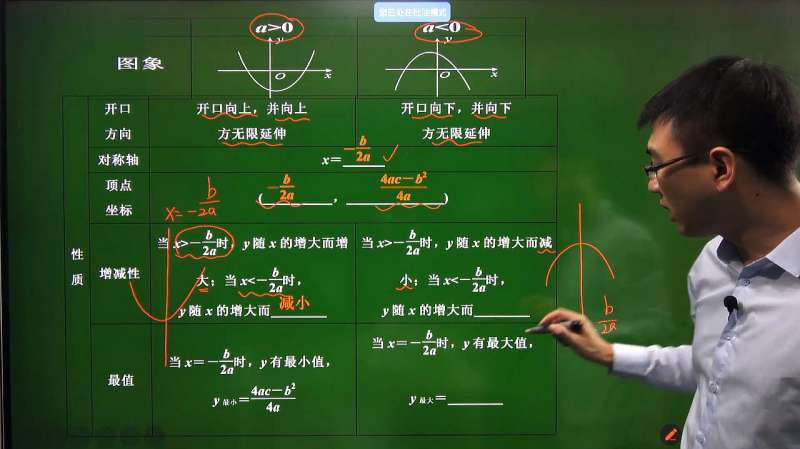 a>0
a<0
图象
y
O
x
y
O
x
性质
开口方向
开口向上，并向上方无限延伸
开口向下，并向下方无限延伸
对称轴
x=-b/2a
顶点坐标
(-b/2a，4ac-b²/4a)
x=-b/2a
增减性
当x>-b/2a时，y随x的增大而增
大；当x<-b/2a时，
y随x的增大而减小
当x>-b/2a时，y随x的增大而减
小；当x<-b/2a时，
y随x的增大而
b/2a
最值
当x=-b/2a时，y有最小值，
y最小=4ac-b²/4a
当x=-b/2a时，y有最大值，
y最大=